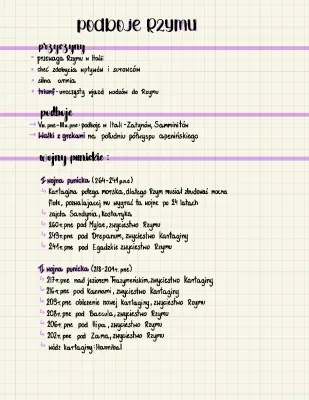 PODBOJE RZYMU
przyczyny
przewaga Rzymu w Italii
chęć zdobycia wpływów i surowców
silna armia
triumf-uroczysty wjazd wodzów do Rzymu
podboje
V w. pne-III w. pne: podboje w Itali-Latynów, Samnnitów
Walki z grekami na południu półwyspu apenińskiego
wojny punickie:
I wojna punicka (264-241 p.n.e)
Kartagina potęga morska, dlatego Rzym musiał zbudować mocną
flotę, pozwalającej mu wygrać tą wojnę po 24 latach
zajęta Sardynia, Korsyka
260 r. pne pod Mylae, zwycięstwo Rzymu
249 r. pne pod Drepanum, zwycięstwo Kartaginy
241 r. pne pod Egadzkie zwycięstwo Rzymu
II wojna punicka (218-201 r. pne)
217 r. pne nad jeziorem Trazymeńskim, zwycięstwo Kartaginy
216 r. pne pod Kannami, zwycięstwo Kartaginy
209 r. pne oblężenie nowej Kartaginy, zwycięstwo Rzymu
208 r. pne pod Baecula, zwycięstwo Rzymu
206 r. pne pod Ilipa, zwycięstwo Rzymu
202 r. pne pod Zamą, zwycięstwo Rzymu
wódz kartaginy: Hannibal